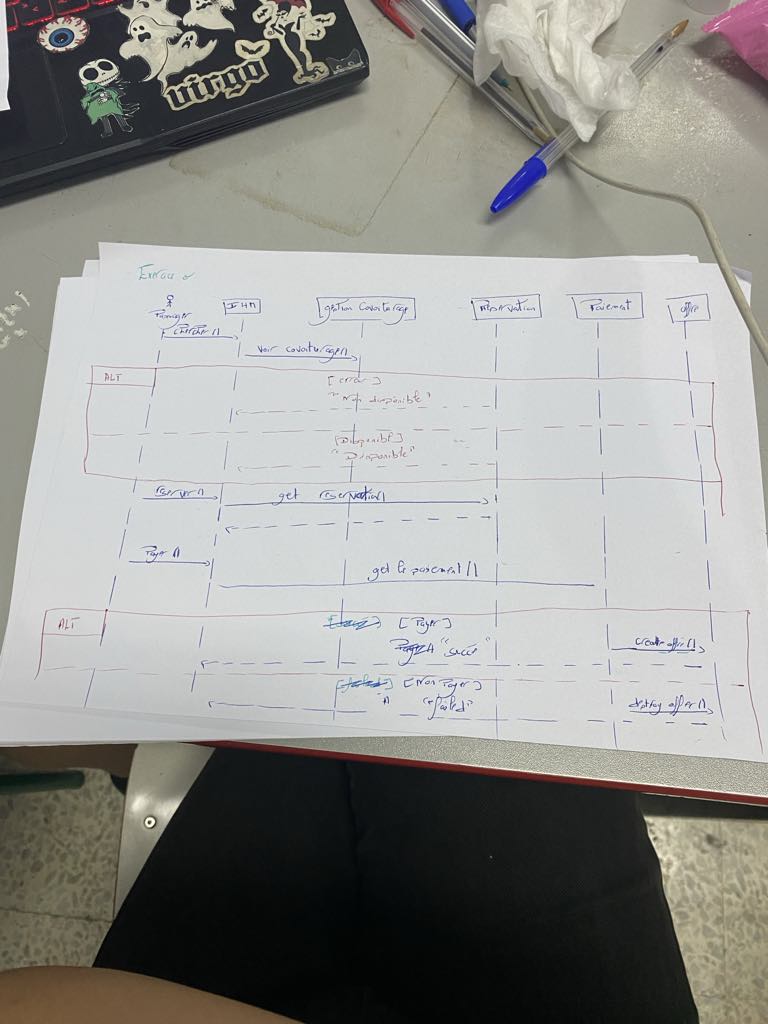 virgo
Exercice
IHM
gestion Covoiturage
Réservation
Paiement
offre
Passager
chercher()
voir covoiturage()
ALT
[error]
"Non disponible"
[Disponible]
"Disponible"
réserver()
get reservation()
Payer()
get le paiement()
ALT
[Payer]
"succé"
create offer()
[Non Payer]
"failed"
destroy offer()